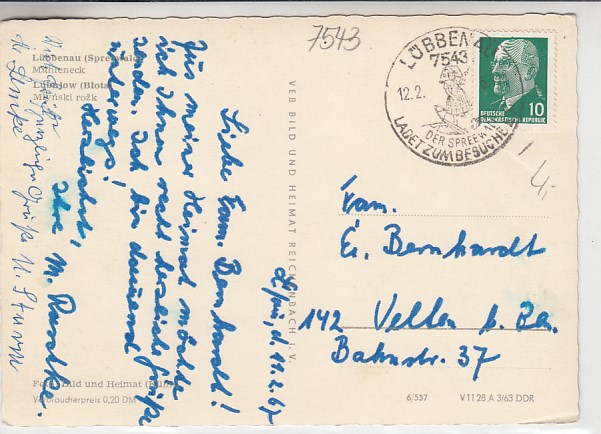 Lübbenau (Spreewald)
Mühleneck
Lubnjow (Błota)
Młyński rožk
7543
LÜBBENAU
7543
12.2.
DER SPREEWALD
LADET ZUM BESUCHE
DEUTSCHE
DEMOKRATISCHE REPUBLIK
10
VEB BILD UND HEIMAT REICHENBACH I. V.
d. 11.2.67
Liebe Fam. Bernhardt!
Aus meiner Heimat möchte
ich Ihnen recht herzliche Grüße
senden. Ich bin dauernd
unterwegs!
Herzlichst,
Ihr M.
Grüße
Fam.
Er. Bernhardt
142 Velten b. Bln.
Bahnstr. 37
Foto: Bild und Heimat
Verbraucherpreis 0,20 DM
6/537
V 11 28 A 3/63 DDR